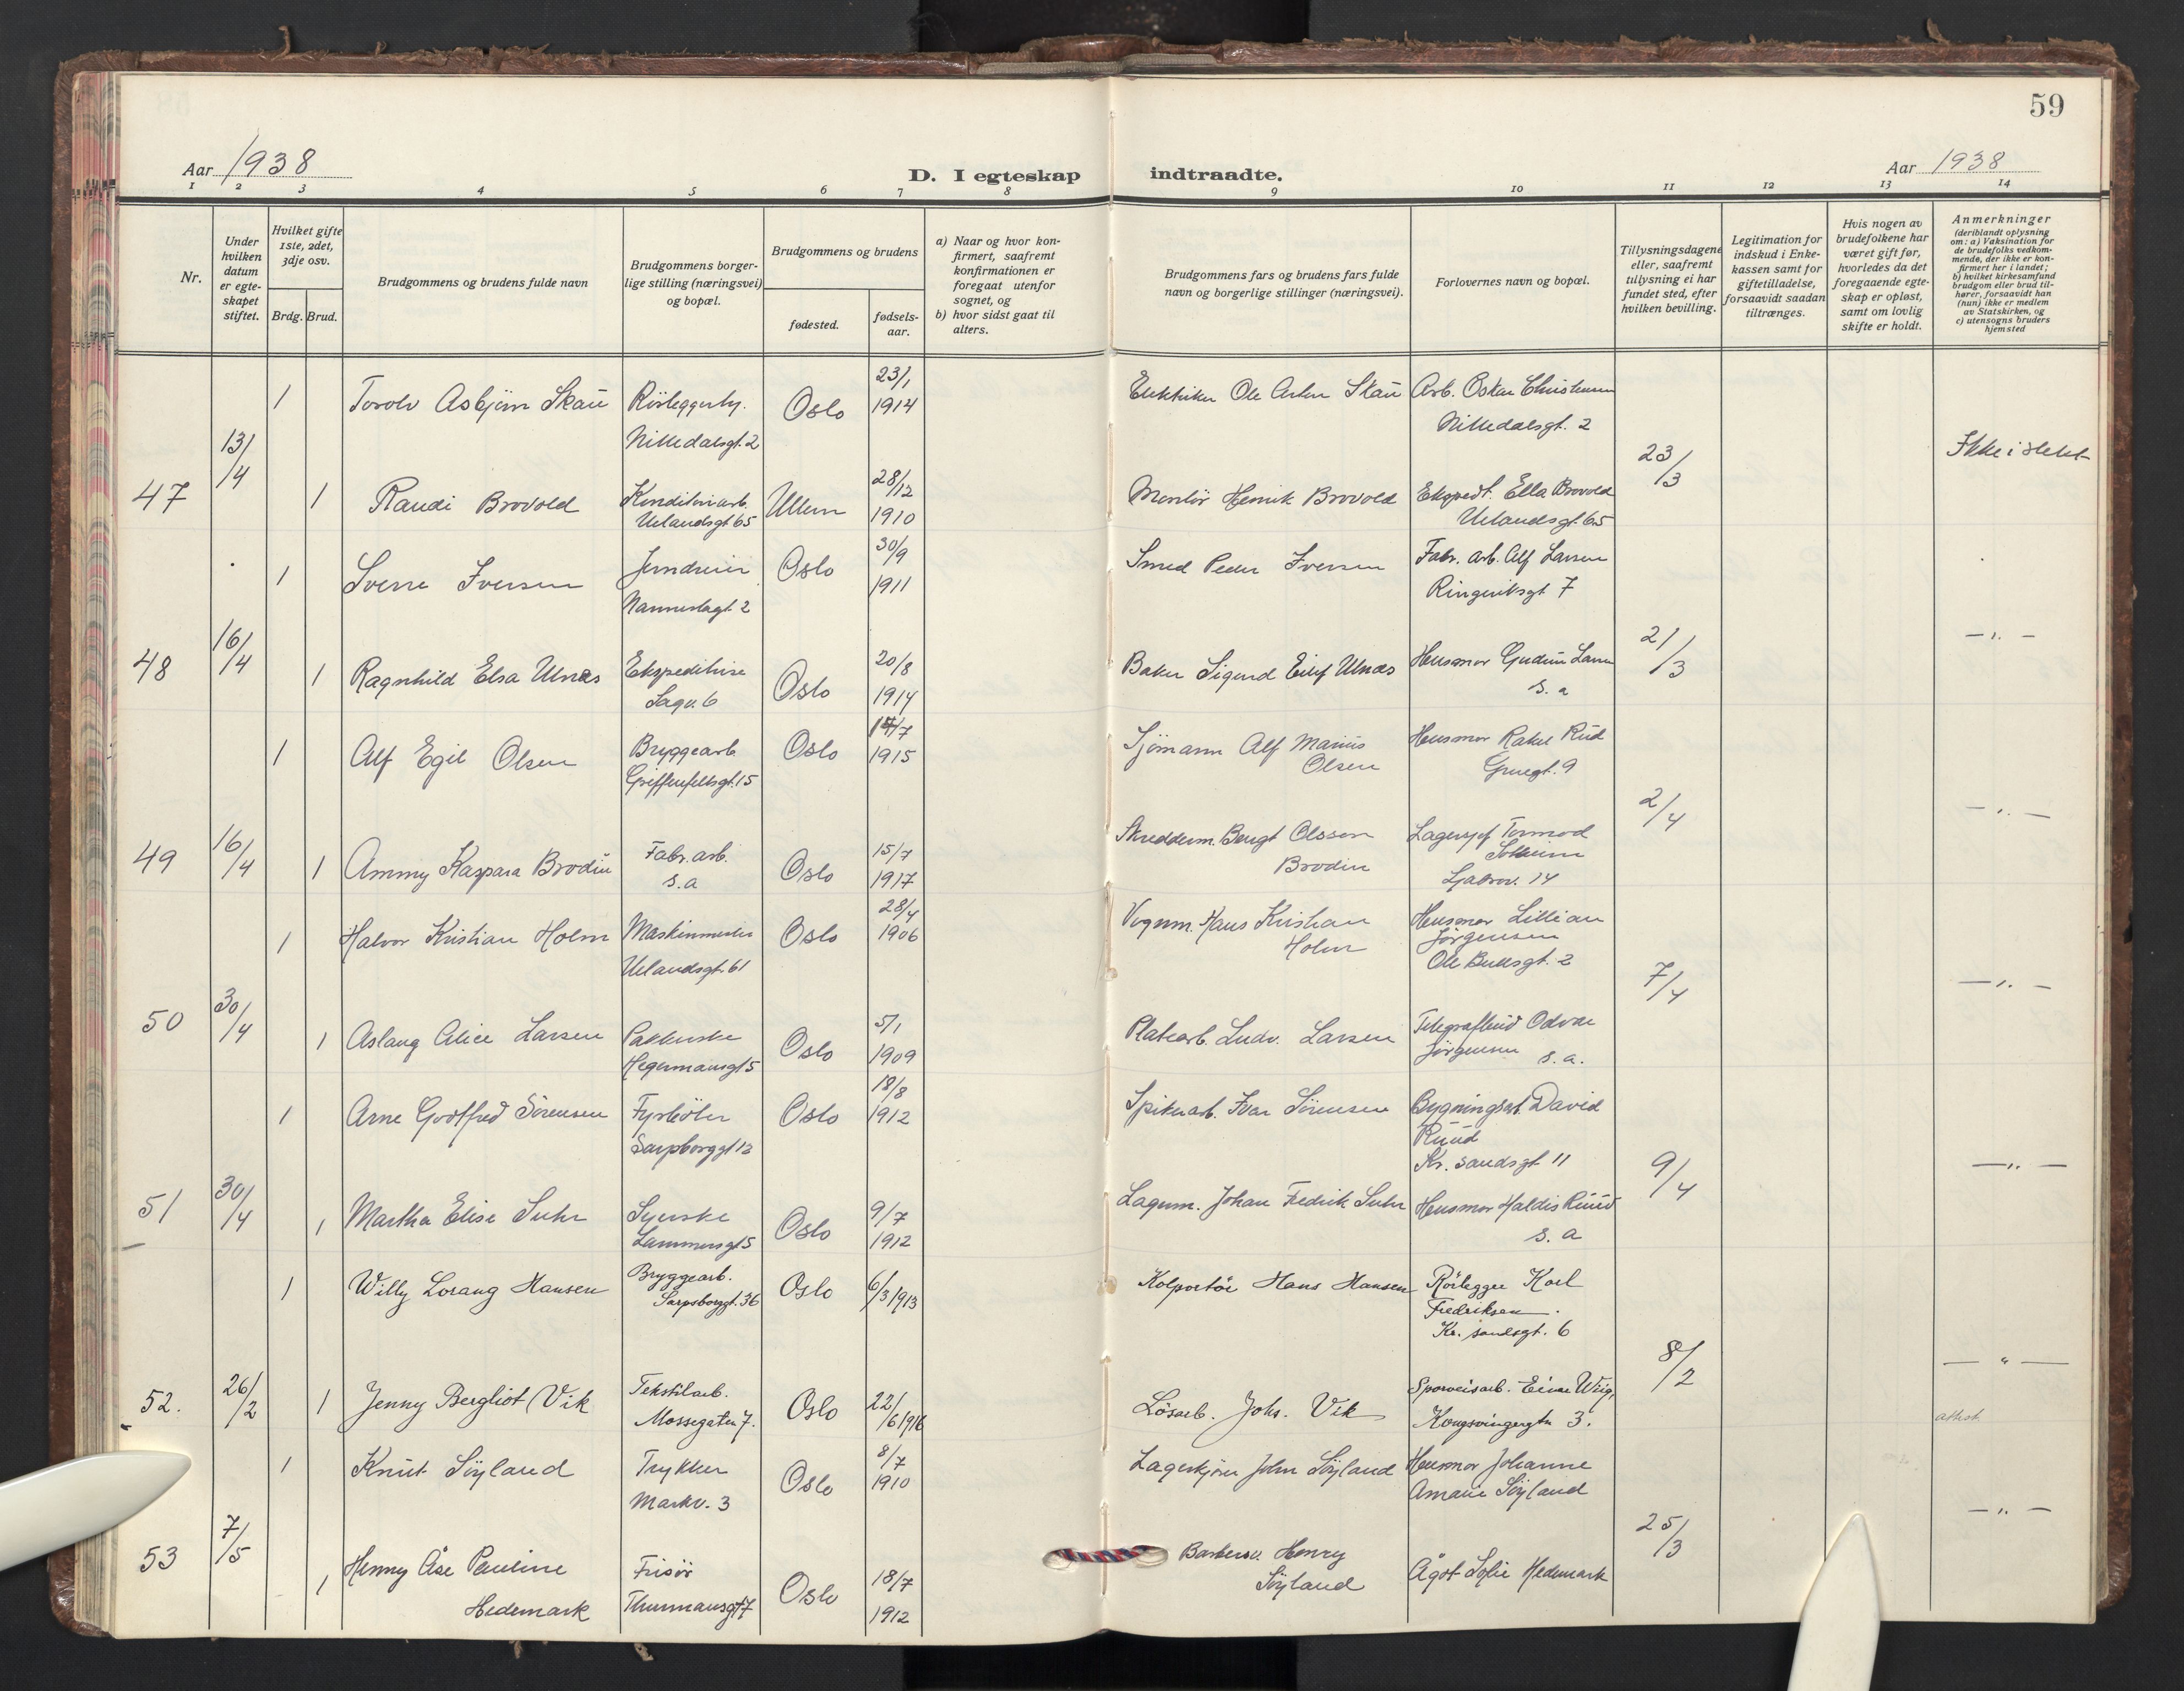 59
Aar 1938
D. I egteskap indtraadte.
Aar 1938
1 2 3 4 5 6 7 8 9 10 11 12 13 14
Nr.
Under hvilken datum er egte-skapet stiftet.
Hvilket gifte 1ste, 2det, 3dje osv.
Brdg. Brud.
Brudgommens og brudens fulde navn
Brudgommens borger-lige stilling (næringsvei) og bopæl.
Brudgommens og brudens
fødested.
fødsels-aar.
a) Naar og hvor kon-firmert, saafremt konfirmationen er foregaat utenfor sognet, og
b) hvor sidst gaat til alters.
Brudgommens fars og brudens fars fulde navn og borgerlige stillinger (næringsvei).
Forlovernes navn og bopæl.
Tillysningsdagene eller, saafremt tillysning ei har fundet sted, efter hvilken bevilling.
Legitimation for indskud i Enke-kassen samt for giftetilladelse, forsaavidt saadan tiltrænges.
Hvis nogen av brudefolkene har været gift før, hvorledes da det foregaaende egte-skap er opløst, samt om lovlig skifte er holdt.
Anmerkninger (deriblandt oplysning om: a) Vaksination for de brudefolks vedkom-mende, der ikke er kon-firmert her i landet; b) hvilket kirkesamfund brudgom eller brud til-hører, forsaavidt han (hun) ikke er medlem av Statskirken, og c) utensogns bruders hjemsted
1 Torolv Asbjørn Skau Rørleggerby. Nittedalsgt. 2 Oslo 23/1 1914 Ole Skau Arb. Oskar Nittedalsgt. 2
47 13/4 1 Randi Brovold Konditoriarb. Uelandsgt 65 Ullern 28/12 1910 Montør Henrik Brovold Ekspedt. Ella Brovold Uelandsgt. 65 23/3 Ikke i slekt
1 Sverre Iversen Jerndreier Nannestagt. 2 Oslo 30/9 1911 Smed Peder Iversen Fabr. arb. Alf Larsen Ringeriksgt 7
48 16/4 1 Ragnhild Elsa Ulnæs Ekspeditrise Sagv. 6 Oslo 20/8 1914 Baker Sigurd Eilif Ulnæs Husmor Gudrun Larsen s. a 21/3 — " —
1 Alf Egil Olsen Bryggearb Griffenfeltsgt. 15 Oslo /7 1915 Sjømann Alf Marius Olsen Husmor Rakel Rud Gruegt. 9
49 16/4 1 Ammy Kaspara Brodin Fabr. arb. s. a Oslo 15/7 1917 Skredderm. Bengt Olsson Brodin Lagersjef Tormod Solheim Ljabrov. 14 2/4 — " —
1 Halvor Kristian Holm Maskinmester Uelandsgt. 61 Oslo 28/4 1906 Vognm. Hans Kristian Holm Husmor Lillian Jørgensen Ole Bullsgt. 2
50 30/4 1 Aslaug Alice Larsen Pakkerske Hegermansgt 5 Oslo 5/1 1909 Platearb. Ludv. Larsen Telegrafbud Odvar Jørgensen s. a. 7/4 — " —
1 Arne Godtfred Sørensen Fyrbøter Sarpborggt 12 Oslo 18/8 1912 Spikerarb. Ivar Sørensen Bygningsarb. David Ruud Kr. sandsgt 11
51 30/4 1 Martha Elise Suhr Syerske Lammersgt 5 Oslo 9/7 1912 Lagerm. Johan Fredrik Suhr Husmor Haldis Ruud s. a 9/4 — " —
1 Willy Losang Hansen Bryggearb. Sarpsborggt. 36 Oslo 6/3 1913 Kolportør Hans Hansen Rørlegger Karl Fredriksen. Kr. sandsgt. 6
52. 26/2 1 Jenny Bergliot Vik Tekstilarb. Mossegaten 7. Oslo 22/6 1916 Løsarb. Johs. Vik Sporveisarb. Einar Kongsvingergtn 3. 8/2 — " —
1 Knut Søyland Trykker Markv. 3 Oslo 8/7 1910 John Søyland Husmor Johanne Amalie Søyland
53 7/5 1 Henny Åse Pauline Hedemark Frisør Thurmansgt 7 Oslo 18/7 1912 Henry Søyland Ågot Sofie Hedemark 25/3 — " —